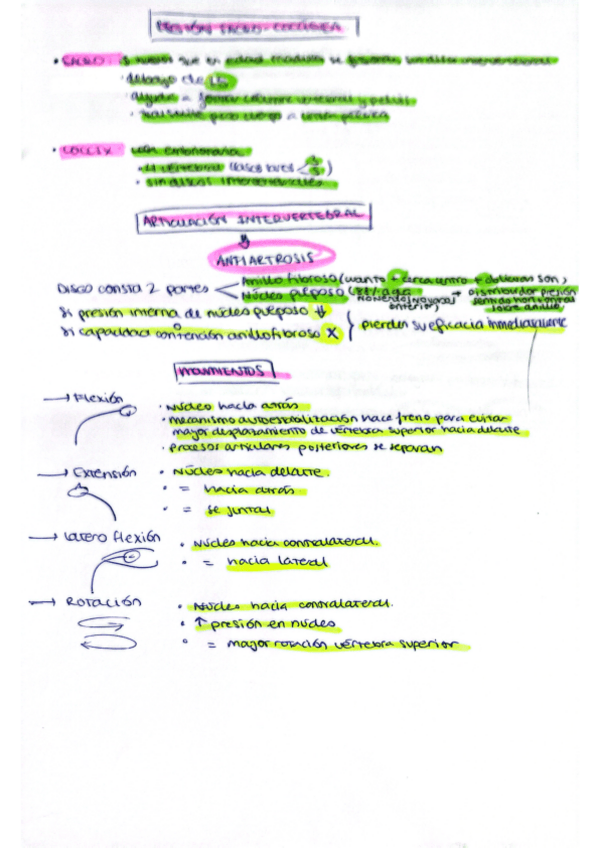 REGIÓN SACRO-COCCÍGEA
• SACRO: 5 huesos que en edad madura se fusionan, sin discos intervertebrales
· debajo de L5
· ayuda a formar columna vertebral y pelvis
· transmite peso cuerpo a cintura pélvica
• COCCIX:
· 4 vertebras
· sin discos intervertebrales
ARTICULACIÓN INTERVERTEBRAL
ANFIARTROSIS
Disco consta 2 partes
Anillo fibroso (cuanto + cerca centro + oblicuas son)
Núcleo pulposo (88% agua → distribuidor presión
sentido horizontal
sobre anillo
Si presión interna de núcleo pulposo ↓
Si capacidad contención anillo fibroso X
pierden su eficacia inmediatamente
MOVIMIENTOS
→ Flexión
· Núcleo hacia atrás
· mecanismo autoestabilización hace freno para evitar
mayor desplazamiento de vértebra superior hacia delante
· procesos articulares posteriores se separan
→ Extensión
• Núcleo hacia delante.
• = hacia atrás
• = se juntas
→ latero flexión
• Núcleo hacia contralateral.
• = hacia lateral
→ Rotación
• Núcleo hacia contralateral.
• ↑ presión en núcleo
• = mayor rotación vértebra superior